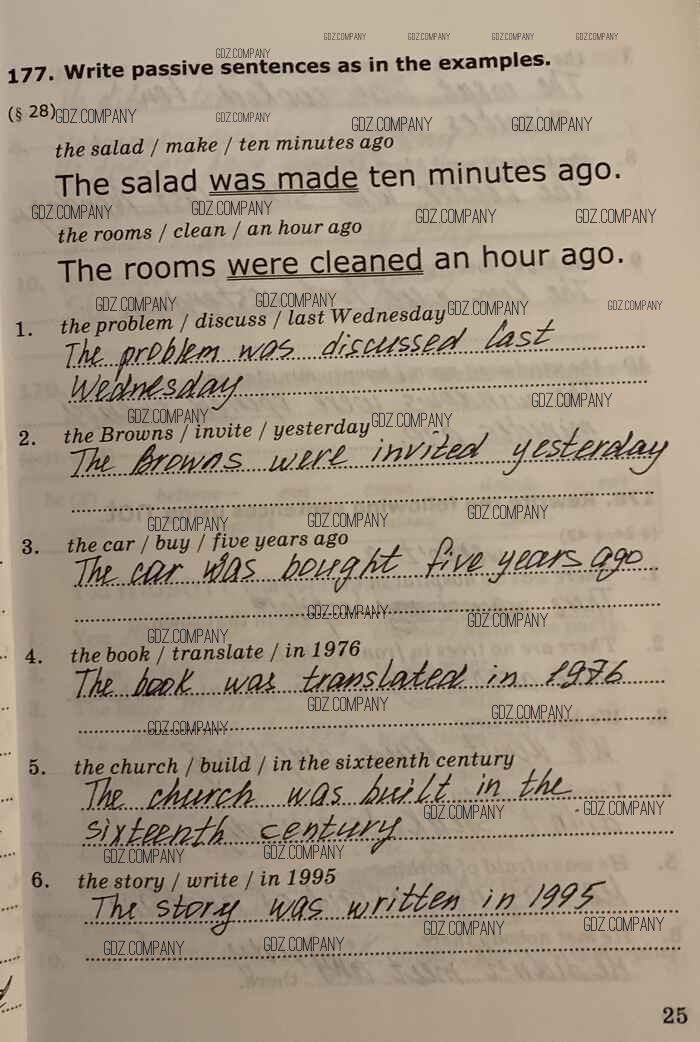 GDZ.COMPANY GDZ.COMPANY GDZ.COMPANY GDZ.COMPANY
GDZ.COMPANY
177. Write passive sentences as in the examples.
(§ 28) GDZ.COMPANY GDZ.COMPANY GDZ.COMPANY GDZ.COMPANY
the salad / make / ten minutes ago
The salad was made ten minutes ago.
GDZ.COMPANY GDZ.COMPANY GDZ.COMPANY GDZ.COMPANY
the rooms / clean / an hour ago
The rooms were cleaned an hour ago.
GDZ.COMPANY GDZ.COMPANY GDZ.COMPANY GDZ.COMPANY
1. the problem / discuss / last Wednesday
The problem was discussed last
Wednesday
GDZ.COMPANY GDZ.COMPANY GDZ.COMPANY
2. the Browns / invite / yesterday
The Browns were invited yesterday
GDZ.COMPANY GDZ.COMPANY GDZ.COMPANY
3. the car / buy / five years ago
The car was bought five years ago
GDZ.COMPANY GDZ.COMPANY
GDZ.COMPANY
4. the book / translate / in 1976
The book was translated in 1976
GDZ.COMPANY GDZ.COMPANY GDZ.COMPANY
5. the church / build / in the sixteenth century
The church was built in the
GDZ.COMPANY GDZ.COMPANY
sixteenth century
GDZ.COMPANY GDZ.COMPANY
6. the story / write / in 1995
The story was written in 1995
GDZ.COMPANY GDZ.COMPANY
GDZ.COMPANY GDZ.COMPANY
25